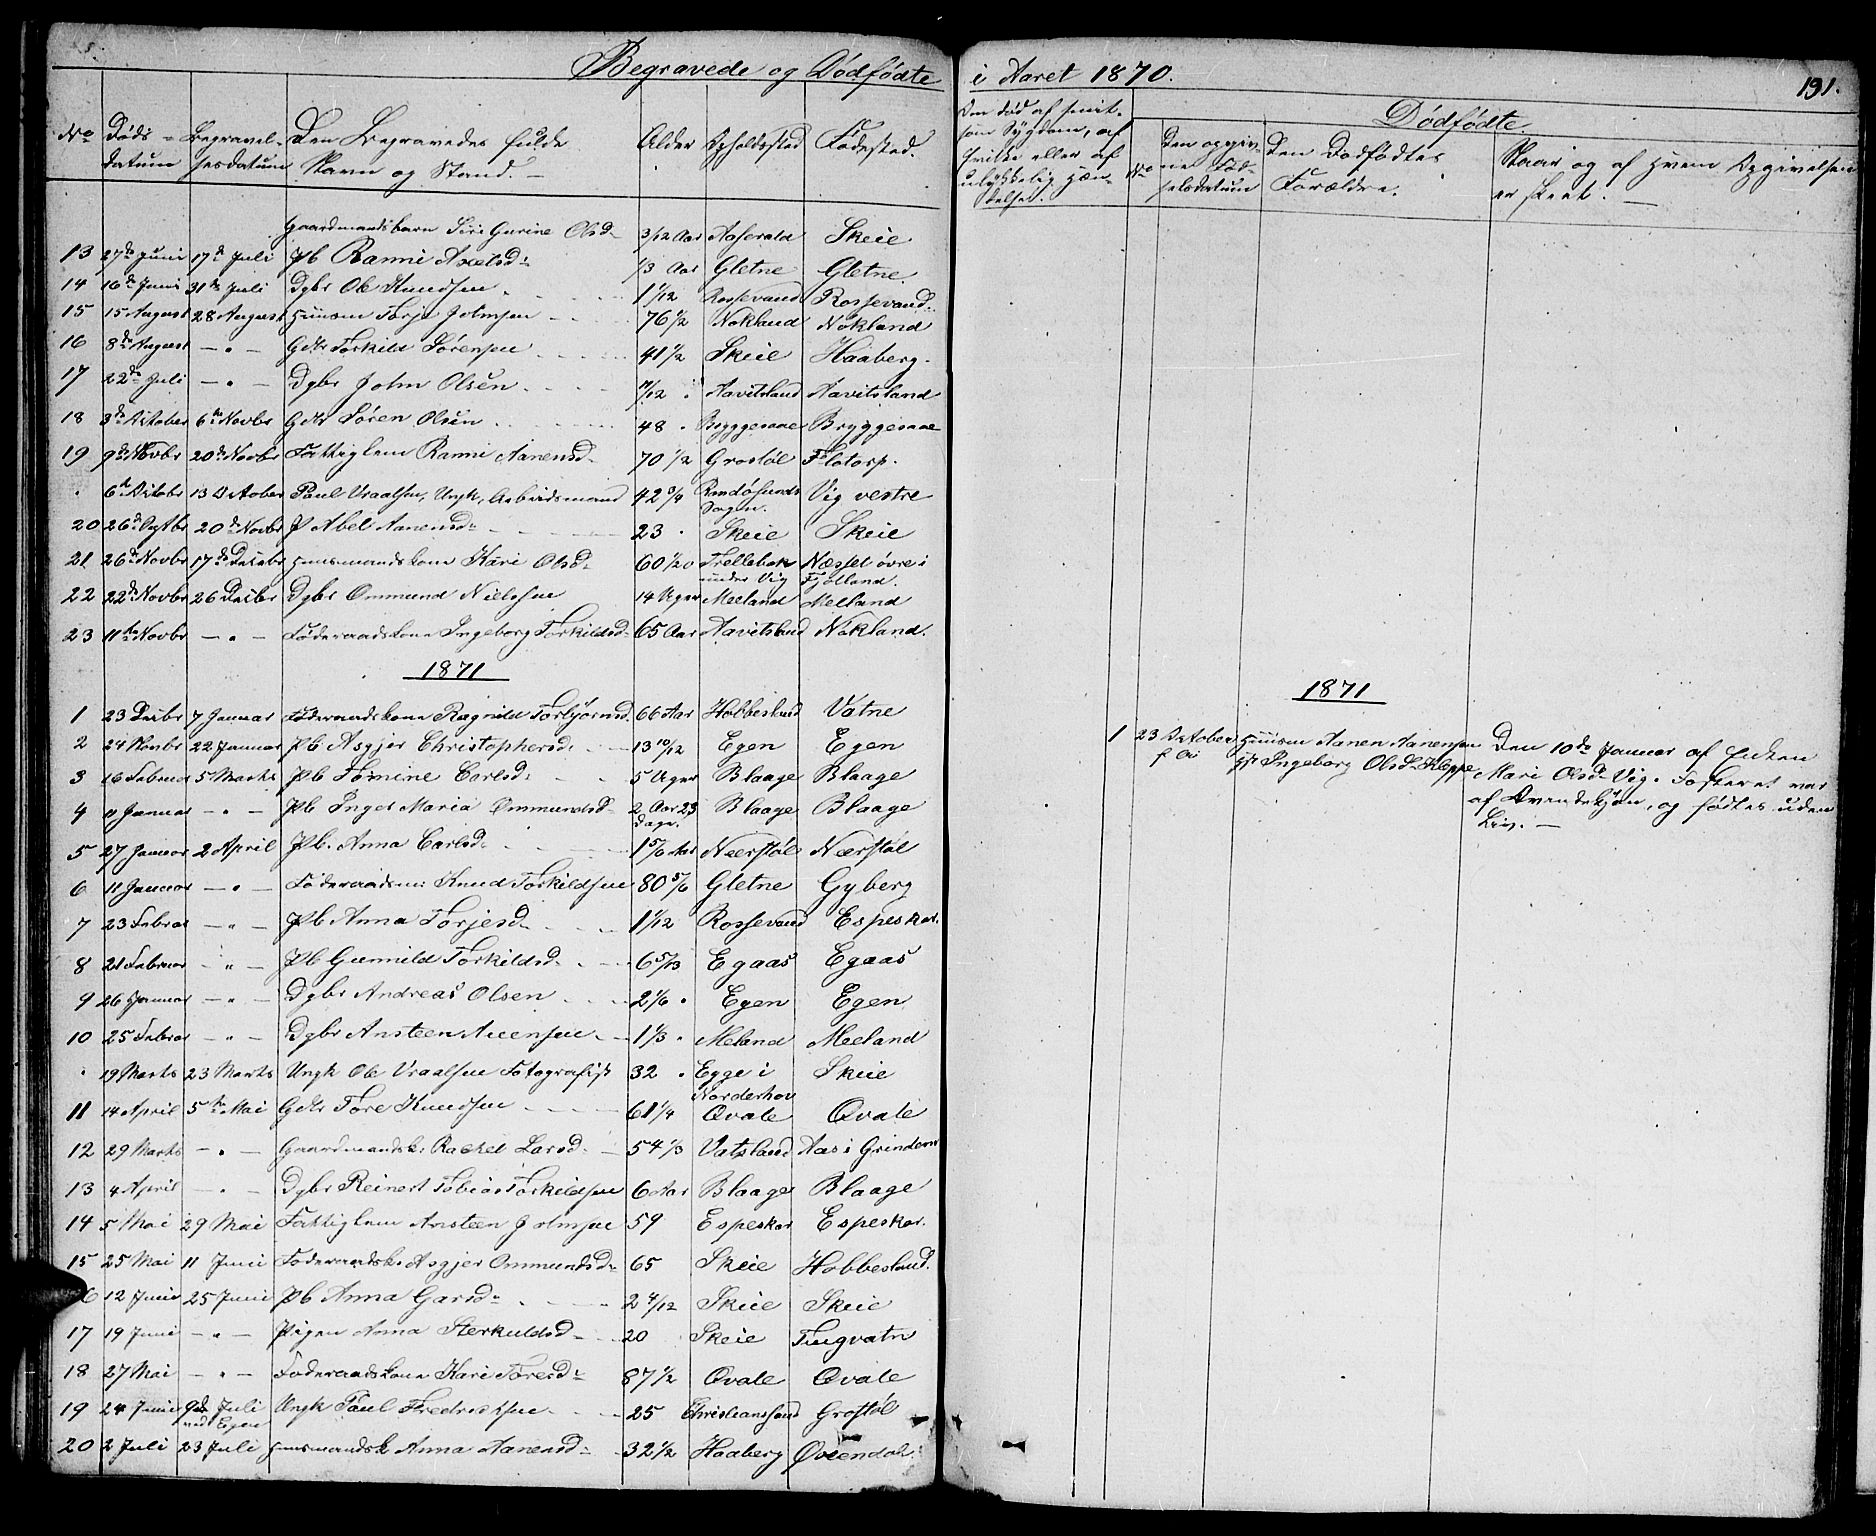 Begravede og Dødfødte i Aaret 1870. 191.
No Døds- datum Begravel- sesdatum Den Begravedes fulde Navn og Stand. Alder Opholdssted Fødested.
Den død af smit- som Sygdom, af hvilke eller af ulykkelig Hæn- delse.
Dødfødte.
No Den opgiv- ne Fød- selsdatum Den Dødfødtes Forældre. Naar og af hvem Opgivelsen er skeet.
Gaardmandsbarn Siri Gurine Olsd. 3/12 Aar Aaserald Skeie
13 27de Juni 17de Juli Pb Ranni Axelsd. 1/3 Aar Gletne Gletne
14 16de Juni 31te Juli Dgbr Ole Knudsen 1 1/12 Rossevand Rossevand
15 15 August 28 August Huusm Torje Johnsen 76 1/2 Nokland Nokland
16 8de August — " — Gdm Torkild Sørensen 41 1/2 Skeie Haaberg
17 22de Juli — " — Dgbr John Olsen /12 Aavitsland Aavitsland
18 3de October 6te Novbr Gdm Søren Olsen 48 Bryggesaae Bryggesaae
19 9de Novbr 20de Novbr Fattiglem Ranni Aanensd. 70 1/2 Grostøl Flotorp
" 6te Octobr 13 October Paul Vraalsen, Ungk, Arbeidsmand 42 3/4 Randøsunds Sogn. Vig vestre
20 26de Septbr 20de Novbr P Abel Aanensd. 23 Skeie Skeie
21 26de Novbr 17de Decbr Huusmandskone Kari Olsd. 60 1/20 Trellebak under Vig Næsset øvre i Fjotland.
22 22de Novbr 26 Decbr Dgbr Ommund Nielsen 14 Uger Meeland Meeland
23 11te Novbr — " — Føderaadskone Ingeborg Torkildsd. 65 Aar Aavitsland Nokland.
1871
1 23 Decbr 7 Januar Føderaadskone Ragnild Torbjørnsd. 66 Aar Hobbesland Vatne
2 24 Novbr 22 Januar Pb Asgjer Christophersd. 13 10/12 Egen Egen
3 16 Februar 5 Marts Pb Tomine Carlsd. 5 Uger Blaage Blaage
4 11 Januar — " — Pb Inger Maria Ommundsd. 2 Aar 23 Dage. Blaage Blaage
5 27 Januar 2 April Pb. Anna Carlsd. 1 5/6 Aar Neerstøl Neerstøl
6 11 Januar — " — Føderaadsm: Knud Torkildsen 80 5/6 Gletne Gyberg
7 23 Februar — " — Pb Anna Torjesd. 1 1/12 Rossevand Espeskar
8 21 Februar — " — Pb Gunnild Torkildsd. 6 5/13 Egaas Egaas
9 26 Januar — " — Dgbr Andreas Olsen 2 1/6 Egen Egen
10 25 Februar — " — Dgbr Ansteen Aneensen 1 1/3 Meland Meeland
" 19 Marts 23 Marts Ungk Ole Vraalsen Fotografist 32 Egge i Norderhov Skeie
11 14 April 5te Mai Gdm Tore Knudsen 61 1/4 Qvale Qvale
12 29 Marts — " — Gaardmandsk: Rachel Larsd. 54 1/3 Vatsland Aas i Grindem
13 4 April — " — Dgbr Reinert Tobias Torkildsen 6 Aar Blaage Blaage
14 5 Mai 29 Mai Fattiglem Ansteen Johnsen 59 Espeskar Espeskar.
15 25 Mai 11 Juni Føderaadsk. Asgjer Ommundsd. 65 Skeie Hobbesland.
6 12 Juni 25 Juni Pb Anna Garsd. 2 4/12 Skeie Skeie
17 19 Juni — " — Pigen Anna Sterkuldsd. 20 Skeie Tingvatn
18 27 Mai — " — Føderaadskone Kari Toresd. 87 1/2 Qvale Qvale
19 24 Juni 9de Juli ved Egen Ungk Paul Fredriksen 25 Christianssand Grostøl
20 2 Juli 23 Juli Huusmandsk Anna Aanensd. 32 1/2 Haaberg Øveendal.
1871
1 23 October f. A. Huusm Aanen Aanensen Hst Ingeborg Olsd. Kleppe
Den 10de Januar af Enken
Mari Olsd. Vig. Fosteret var
af Qvindekjøn, og fødtes uden
Liv. —